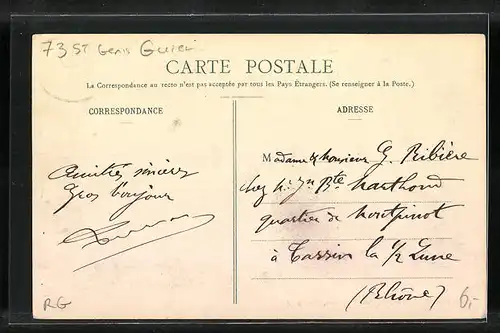 73 St Genis Guier
CARTE POSTALE
La Correspondance au recto n'est pas acceptée par tous les Pays Étrangers. (Se renseigner à la Poste.)
CORRESPONDANCE
ADRESSE
Amitiés sincères
Gros bonjour
Madame & Monsieur G. Ribière
chez Mr Jn Bte Marthoud
quartier de Montpinot
à Tassin la 1/2 Lune
(Rhône)
RG
6,-